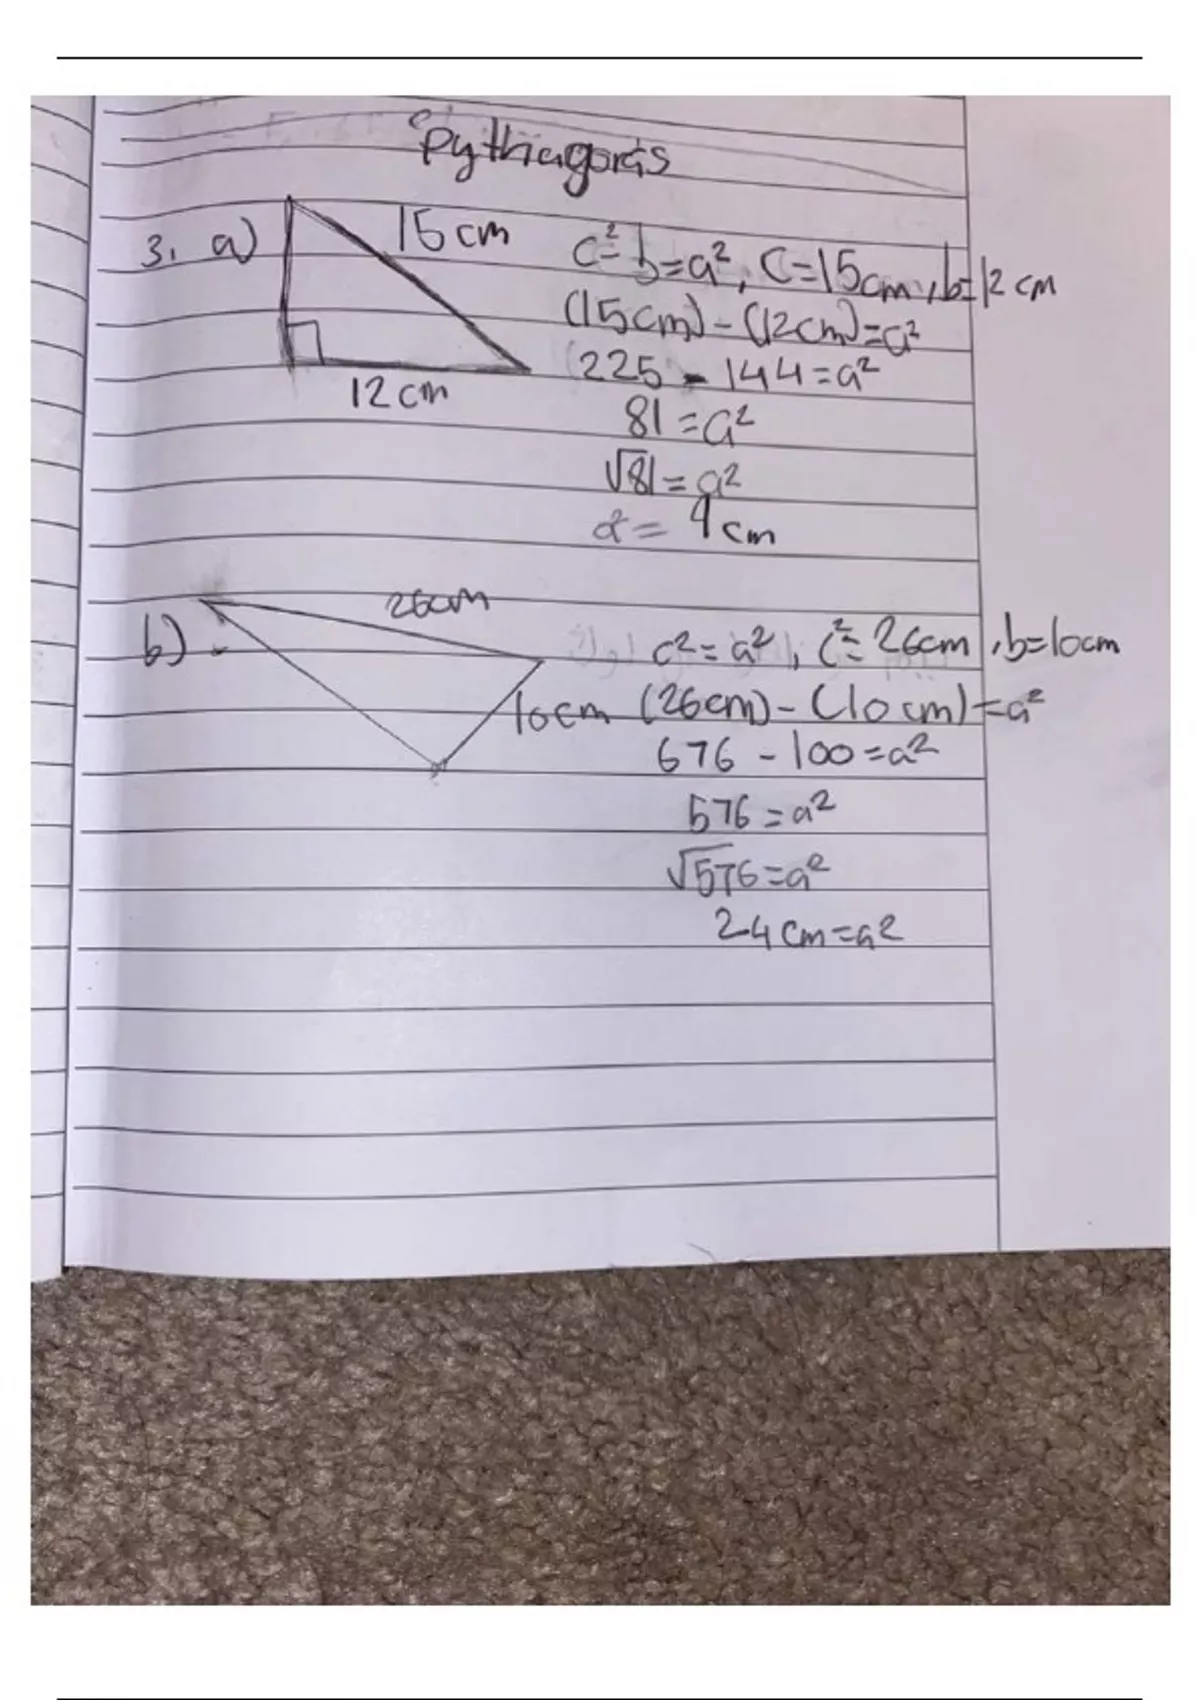 Pythagoras
3. a)
15 cm
12 cm
c²= b=a², C=15cm, b=12 cm
(15cm)-(12cm)=a²
225 - 144=a²
81=a²
√81=a²
a²= 9 cm
b)
26cm
10cm
c²=a², c²= 26cm, b=10cm
(26cm)-(10cm)=a²
676 - 100=a²
576=a²
√576=a²
24cm=a²